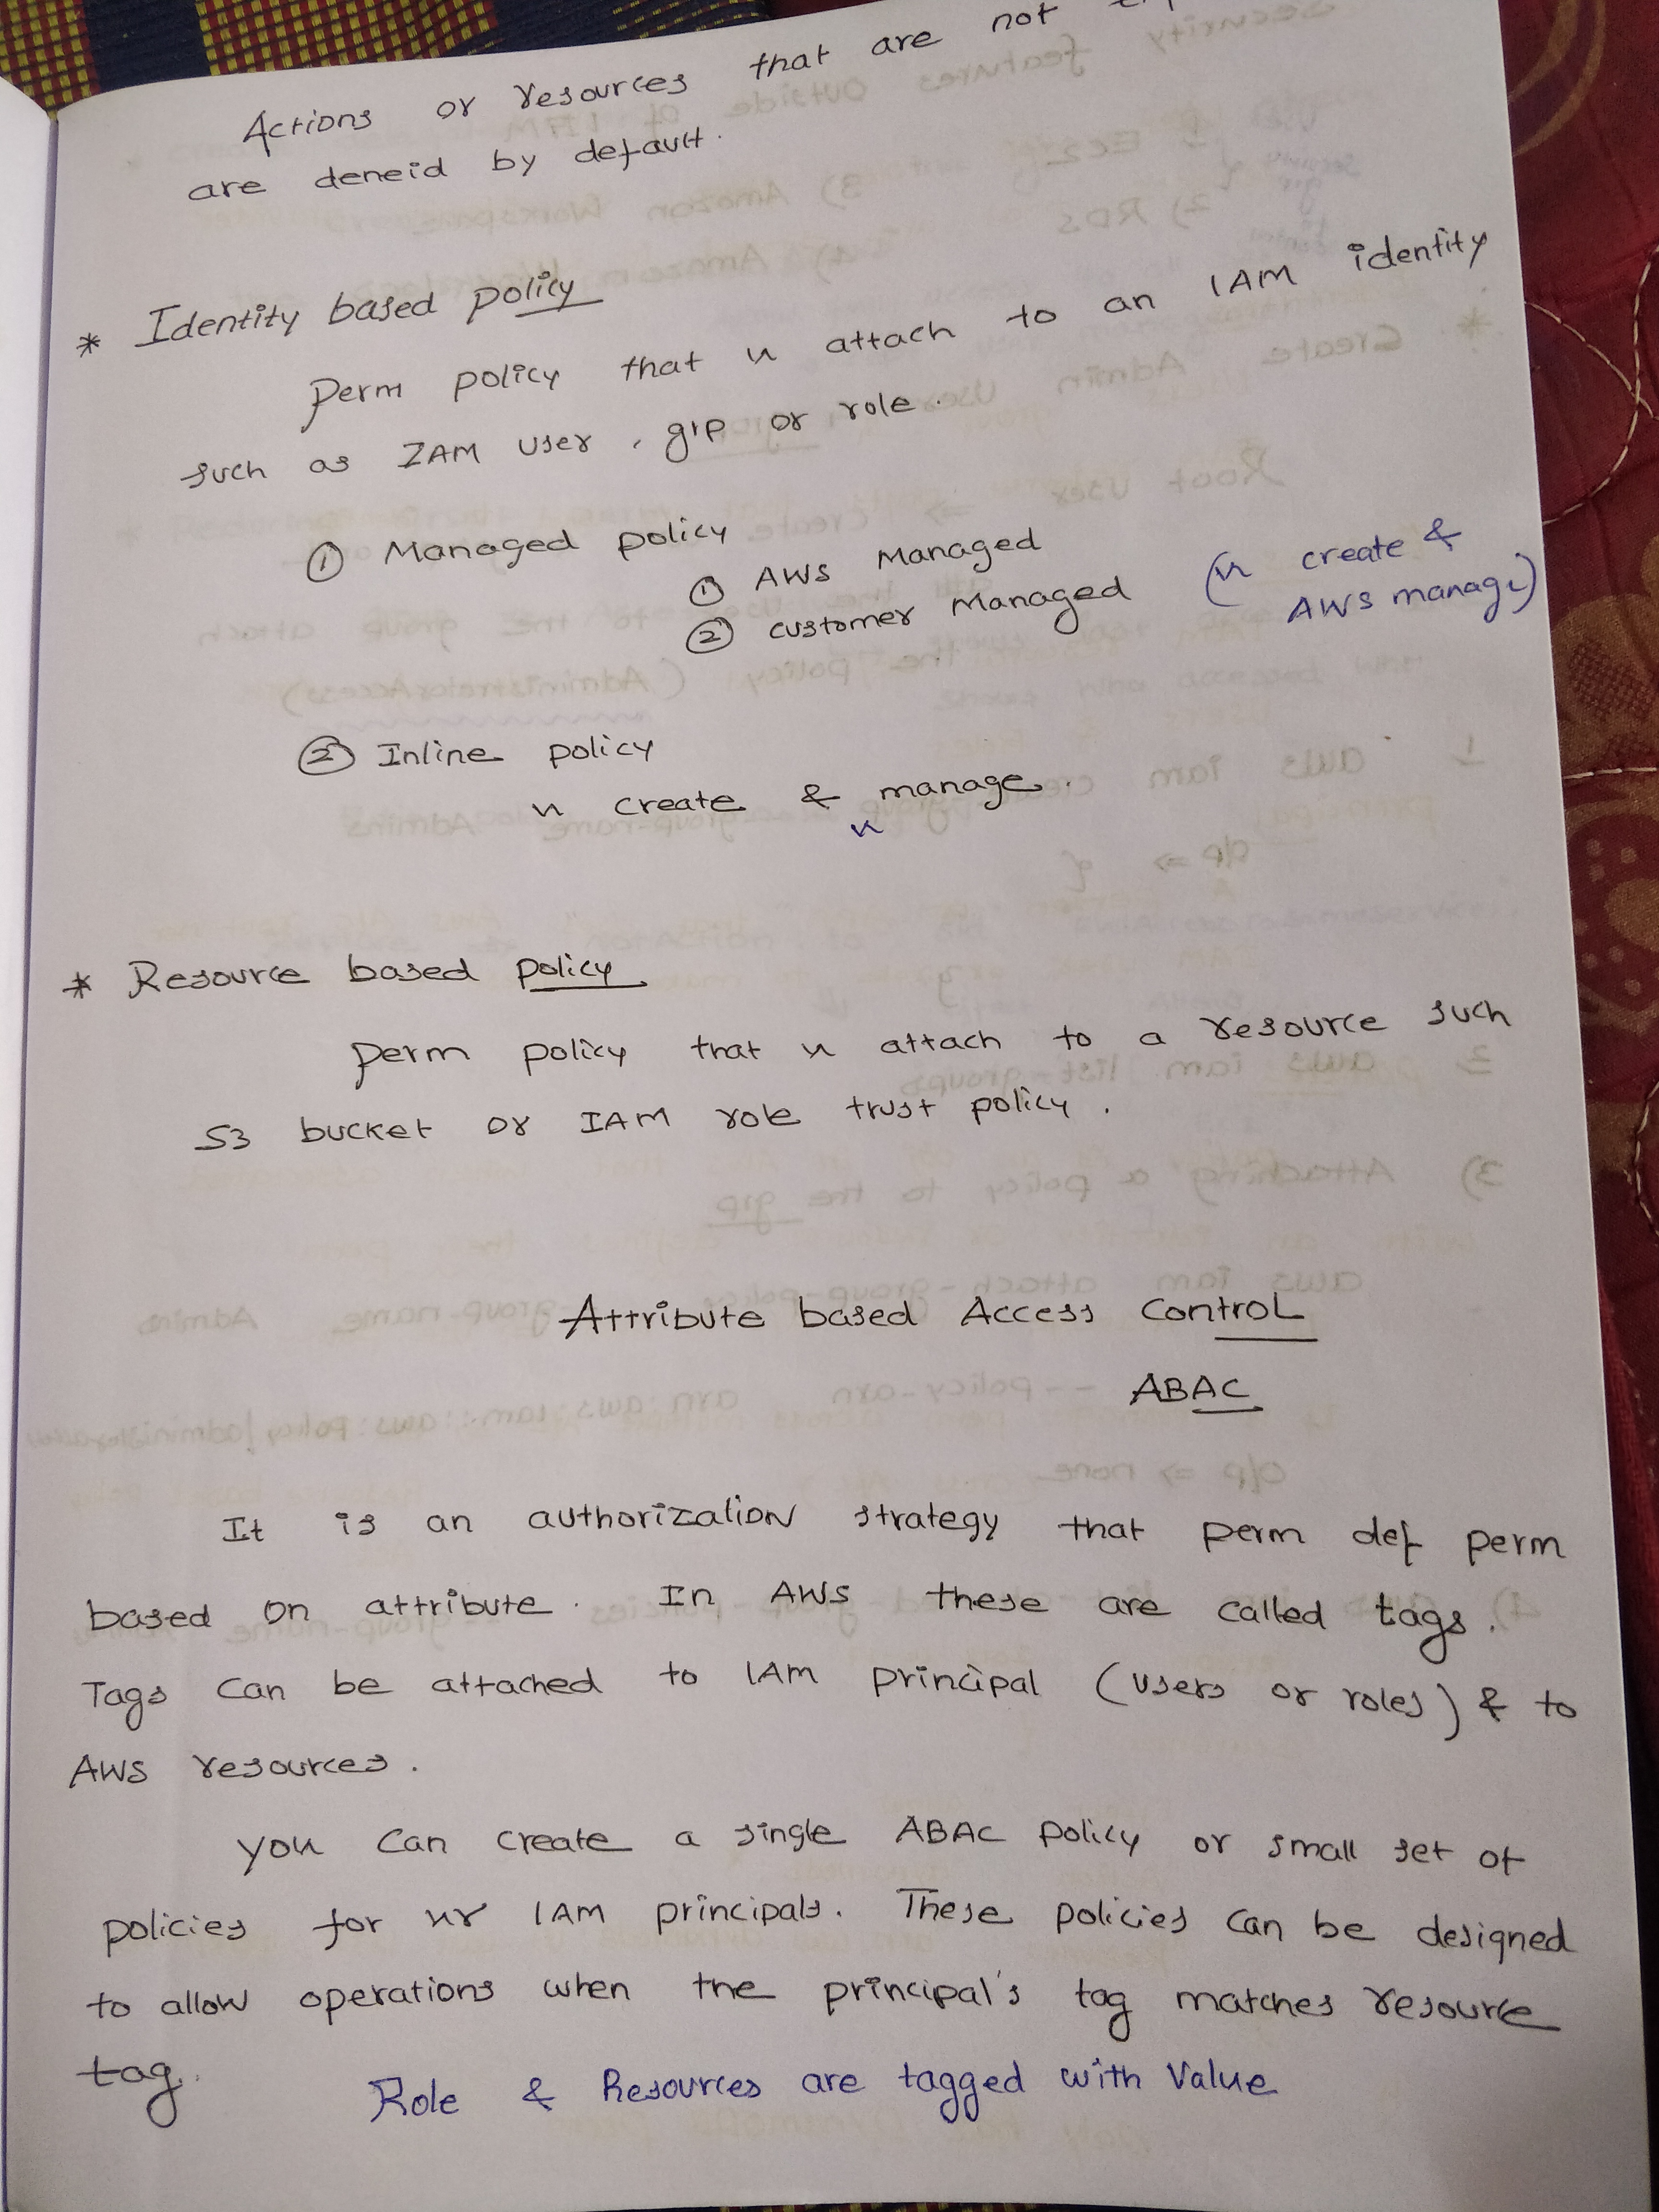 Actions or resources that are not
are deneid by default.
* Identity based policy
Perm policy that u attach to an IAM identity
such as IAM user, grp or role.
① Managed policy
① AWS Managed
② customer Managed (u create &
AWS manage)
② Inline policy
u create & manage.
u
* Resource based policy
Perm policy that u attach to a resource such
S3 bucket or IAM role trust policy.
Attribute based Access Control
ABAC
It is an authorization strategy that perm def perm
based on attribute. In AWS these are called tags.
Tags can be attached to IAM principal (users or roles) & to
AWS resources.
You can create a single ABAC policy or small set of
policies for ur IAM principals. These policies can be designed
to allow operations when the principal's tag matches resource
tag.
Role & Resources are tagged with Value